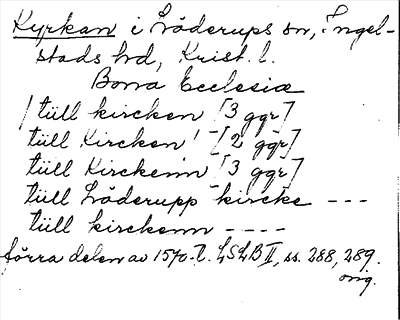 Kyrkan i Löderups sn, Ingel-
stads hd, Krist. l.
Bona Ecclesiæ
/ tüll kircken [3 ggr]
tüll Kircken [2 ggr]
tüll Kirckenn [3 ggr]
tüll Löderupp kircke ---
tüll kirckenn ----
förra delen av 1570-t. LSLB II, ss. 288, 289.
orig.